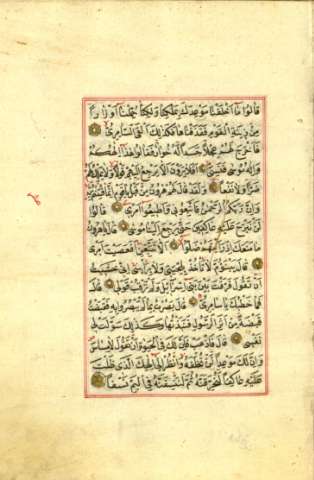 قَالُوا مَا أَخْلَفْنَا مَوْعِدَكَ بِمَلْكِنَا وَلَكِنَّا حُمِّلْنَا أَوْزَارًا
مِنْ زِينَةِ الْقَوْمِ فَقَذَفْنَاهَا فَكَذَلِكَ أَلْقَى السَّامِرِيُّ
فَأَخْرَجَ لَهُمْ عِجْلًا جَسَدًا لَهُ خُوَارٌ فَقَالُوا هَذَا إِلَهُكُمْ
وَإِلَهُ مُوسَى فَنَسِيَ أَفَلَا يَرَوْنَ أَلَّا يَرْجِعُ إِلَيْهِمْ قَوْلًا وَلَا يَمْلِكُ لَهُمْ
ضَرًّا وَلَا نَفْعًا وَلَقَدْ قَالَ لَهُمْ هَرُونُ مِنْ قَبْلُ يَا قَوْمِ إِنَّمَا فُتِنْتُمْ بِهِ
وَإِنَّ رَبَّكُمُ الرَّحْمَنُ فَاتَّبِعُونِي وَأَطِيعُوا أَمْرِي قَالُوا
لَنْ نَبْرَحَ عَلَيْهِ عَاكِفِينَ حَتَّى يَرْجِعَ إِلَيْنَا مُوسَى قَالَ يَا هَرُونُ
مَا مَنَعَكَ إِذْ رَأَيْتَهُمْ ضَلُّوا أَلَّا تَتَّبِعَنِ أَفَعَصَيْتَ أَمْرِي
قَالَ يَبْنَؤُمَّ لَا تَأْخُذْ بِلِحْيَتِي وَلَا بِرَأْسِي إِنِّي خَشِيتُ
أَنْ تَقُولَ فَرَّقْتَ بَيْنَ بَنِي إِسْرَائِيلَ وَلَمْ تَرْقُبْ قَوْلِي قَالَ
فَمَا خَطْبُكَ يَا سَامِرِيُّ قَالَ بَصُرْتُ بِمَا لَمْ يَبْصُرُوا بِهِ فَقَبَضْتُ
قَبْضَةً مِنْ أَثَرِ الرَّسُولِ فَنَبَذْتُهَا وَكَذَلِكَ سَوَّلَتْ لِي
نَفْسِي قَالَ فَاذْهَبْ فَإِنَّ لَكَ فِي الْحَيَوةِ أَنْ تَقُولَ لَا مِسَاسَ
وَإِنَّ لَكَ مَوْعِدًا لَنْ تُخْلَفَهُ وَانْظُرْ إِلَى إِلَهِكَ الَّذِي ظَلْتَ
عَلَيْهِ عَاكِفًا لَنُحَرِّقَنَّهُ ثُمَّ لَنَنْسِفَنَّهُ فِي الْيَمِّ نَسْفًا